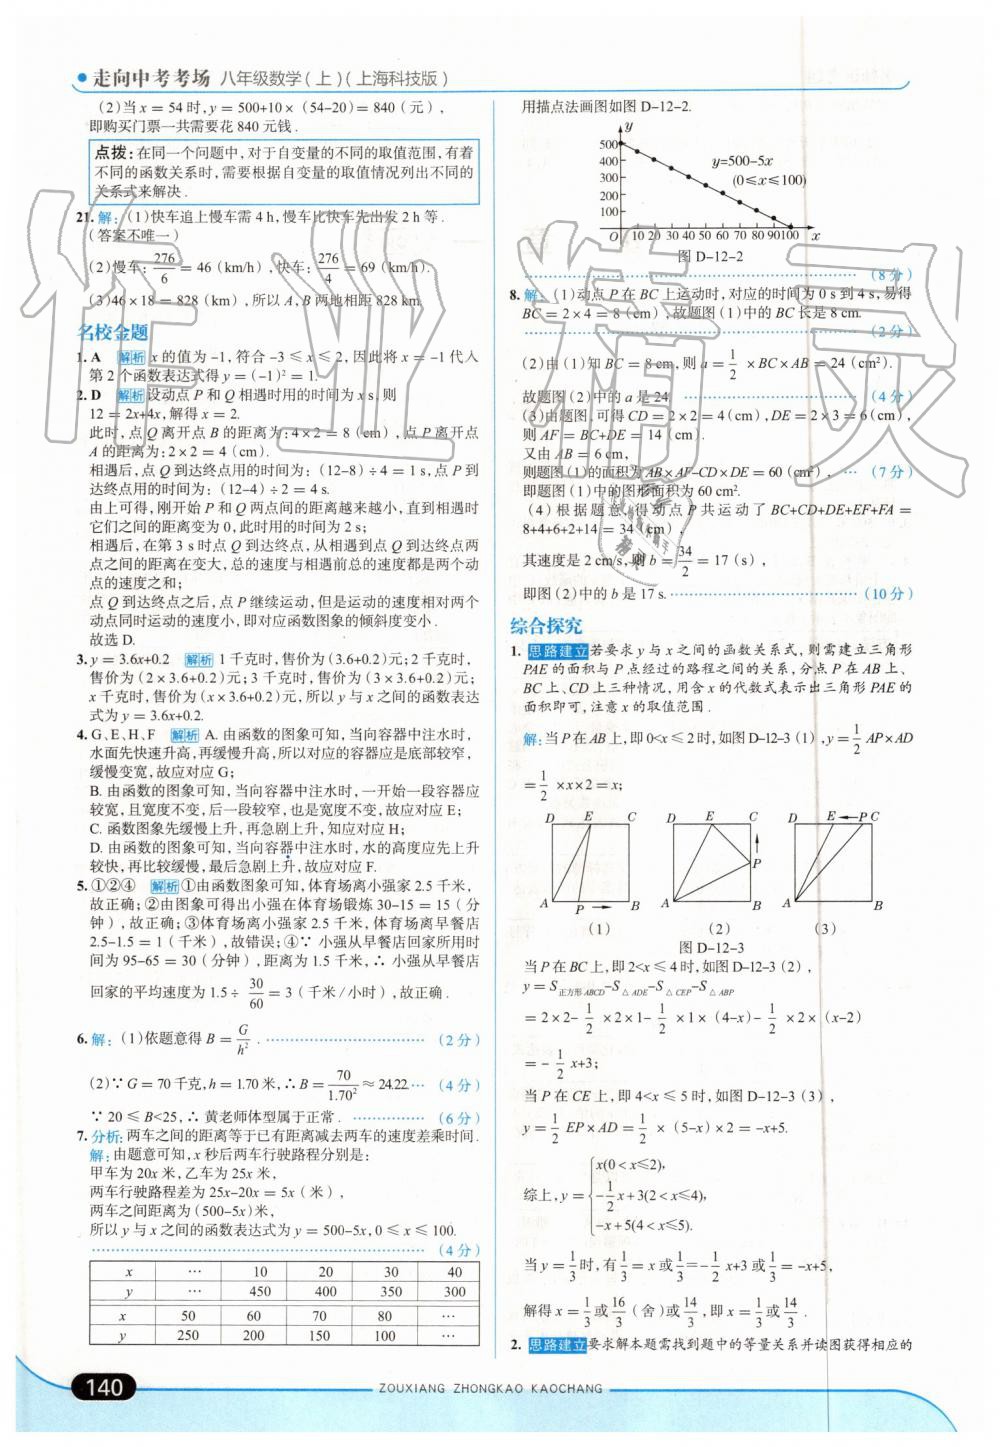 走向中考考场 八年级数学(上)(上海科技版)
(2)当x=54时,y=500+10×(54-20)=840(元),
即购买门票一共需要花840元钱.
点拨:在同一个问题中,对于自变量的不同的取值范围,有着
不同的函数关系时,需要根据自变量的取值情况列出不同的
关系式来解决.
21.解:(1)快车追上慢车需4h,慢车比快车先出发2h等.
(答案不唯一)
(2)慢车:276/6=46(km/h),快车:276/4=69(km/h).
(3)46×18=828(km),所以A,B两地相距828km.
名校金题
1.A 解析 x的值为-1,符合-3≤x≤2,因此将x=-1代入
第2个函数表达式得y=(-1)²=1.
2.D 解析 设动点P和Q相遇时用的时间为x s,则
12=2x+4x,解得x=2.
此时,点Q离开点B的距离为:4×2=8(cm),点P离开点
A的距离为:2×2=4(cm).
相遇后,点Q到达终点用的时间为:(12-8)÷4=1s,点P到
达终点用的时间为:(12-4)÷2=4s.
由上可得,刚开始P和Q两点间的距离越来越小,直到相遇时
它们之间的距离变为0,此时用的时间为2s;
相遇后,在第3s时点Q到达终点,从相遇到点Q到达终点两
点之间的距离在变大,总的速度与相遇前总的速度都是两个动
点的速度之和;
点Q到达终点之后,点P继续运动,但是运动的速度相对两个
动点同时运动的速度小,即对应函数图象的倾斜度变小.
故选D.
3.y=3.6x+0.2 解析 1千克时,售价为(3.6+0.2)元;2千克时,
售价为(2×3.6+0.2)元;3千克时,售价为(3×3.6+0.2)元,
x千克时,售价为(x×3.6+0.2)元,所以y与x之间的函数表达
式为y=3.6x+0.2.
4.G、E、H、F 解析 A.由函数的图象可知,当向容器中注水时,
水面先快速升高,再缓慢升高,所以对应的容器应是底部较窄,
缓慢变宽,故应对应G;
B.由函数的图象可知,当向容器中注水时,一开始一段容器应
较宽,且宽度不变,后一段较窄,也是宽度不变,故应对应E;
C.函数图象先缓慢上升,再急剧上升,知应对应H;
D.由函数的图象可知,当向容器中注水时,水的高度应先上升
较快,再比较缓慢,最后急剧上升,故应对应F.
5.①②④ 解析 ①由函数图象可知,体育场离小强家2.5千米,
故正确;②由图象可得出小强在体育场锻炼30-15=15(分
钟),故正确;③体育场离小强家2.5千米,体育场离早餐店
2.5-1.5=1(千米),故错误;④∵小强从早餐店回家所用时
间为95-65=30(分钟),距离为1.5千米,∴小强从早餐店
回家的平均速度为1.5÷30/60=3(千米/小时),故正确.
6.解:(1)依题意得B=G/h².……(2分)
(2)∵G=70千克,h=1.70米,∴B=70/1.70²≈24.22.…(4分)
∵20≤B<25,∴黄老师体型属于正常.……(6分)
7.分析:两车之间的距离等于已有距离减去两车的速度差乘时间.
解:由题意可知,x秒后两车行驶路程分别是:
甲车为20x米,乙车为25x米,
两车行驶路程差为25x-20x=5x(米),
两车之间距离为(500-5x)米,
所以y与x之间的函数表达式为y=500-5x,0≤x≤100.
……(4分)
x … 10 20 30 40
y … 450 400 350 300
x 50 60 70 80 …
y 250 200 150 100 …
用描点法画图如图D-12-2.
y
500
400
300
200
100
y=500-5x
(0≤x≤100)
O 10 20 30 40 50 60 70 80 90100 x
图D-12-2
……(8分)
8.解:(1)动点P在BC上运动时,对应的时间为0s到4s,易得
BC=2×4=8(cm),故题图(1)中的BC长是8cm.
……(2分)
(2)由(1)知BC=8cm,则a=1/2×BC×AB=24(cm²).
故题图(2)中的a是24.……(4分)
(3)由题图,可得CD=2×2=4(cm),DE=2×3=6(cm),
则AF=BC+DE=14(cm).
又由AB=6cm,
则题图(1)的面积为AB×AF-CD×DE=60(cm²),…(7分)
即题图(1)中的图形面积为60cm².
(4)根据题意,得动点P共运动了BC+CD+DE+EF+FA=
8+4+6+2+14=34(cm),
其速度是2cm/s,则b=34/2=17(s),
即图(2)中的b是17s.……(10分)
综合探究
1.思路建立 若要求y与x之间的函数关系式,则需建立三角形
PAE的面积与P点经过的路程之间的关系,分点P在AB上、
BC上、CD上三种情况,用含x的代数式表示出三角形PAE的
面积即可,注意x的取值范围.
解:当P在AB上,即0<x≤2时,如图D-12-3(1),y=1/2 AP×AD
=1/2×x×2=x;
D E C
A P B
(1)
D E C
P
A B
(2)
D E P C
A B
(3)
图D-12-3
当P在BC上,即2<x≤4时,如图D-12-3(2),
y=S正方形ABCD-S△ADE-S△CEP-S△ABP
=2×2-1/2×2×1-1/2×1×(4-x)-1/2×2×(x-2)
=-1/2x+3;
当P在CE上,即4<x≤5时,如图D-12-3(3),
y=1/2EP×AD=1/2×(5-x)×2=-x+5.
综上,y={x(0<x≤2),
-1/2x+3(2<x≤4),
-x+5(4<x≤5).
当y=1/3时,有1/3=x或1/3=-1/2x+3或1/3=-x+5,
解得x=1/3或16/3(舍)或14/3,即x=1/3或14/3.
2.思路建立 要求解本题需找到题中的等量关系并读图获得相应的
140
ZOUXIANG ZHONGKAO KAOCHANG
作业精灵